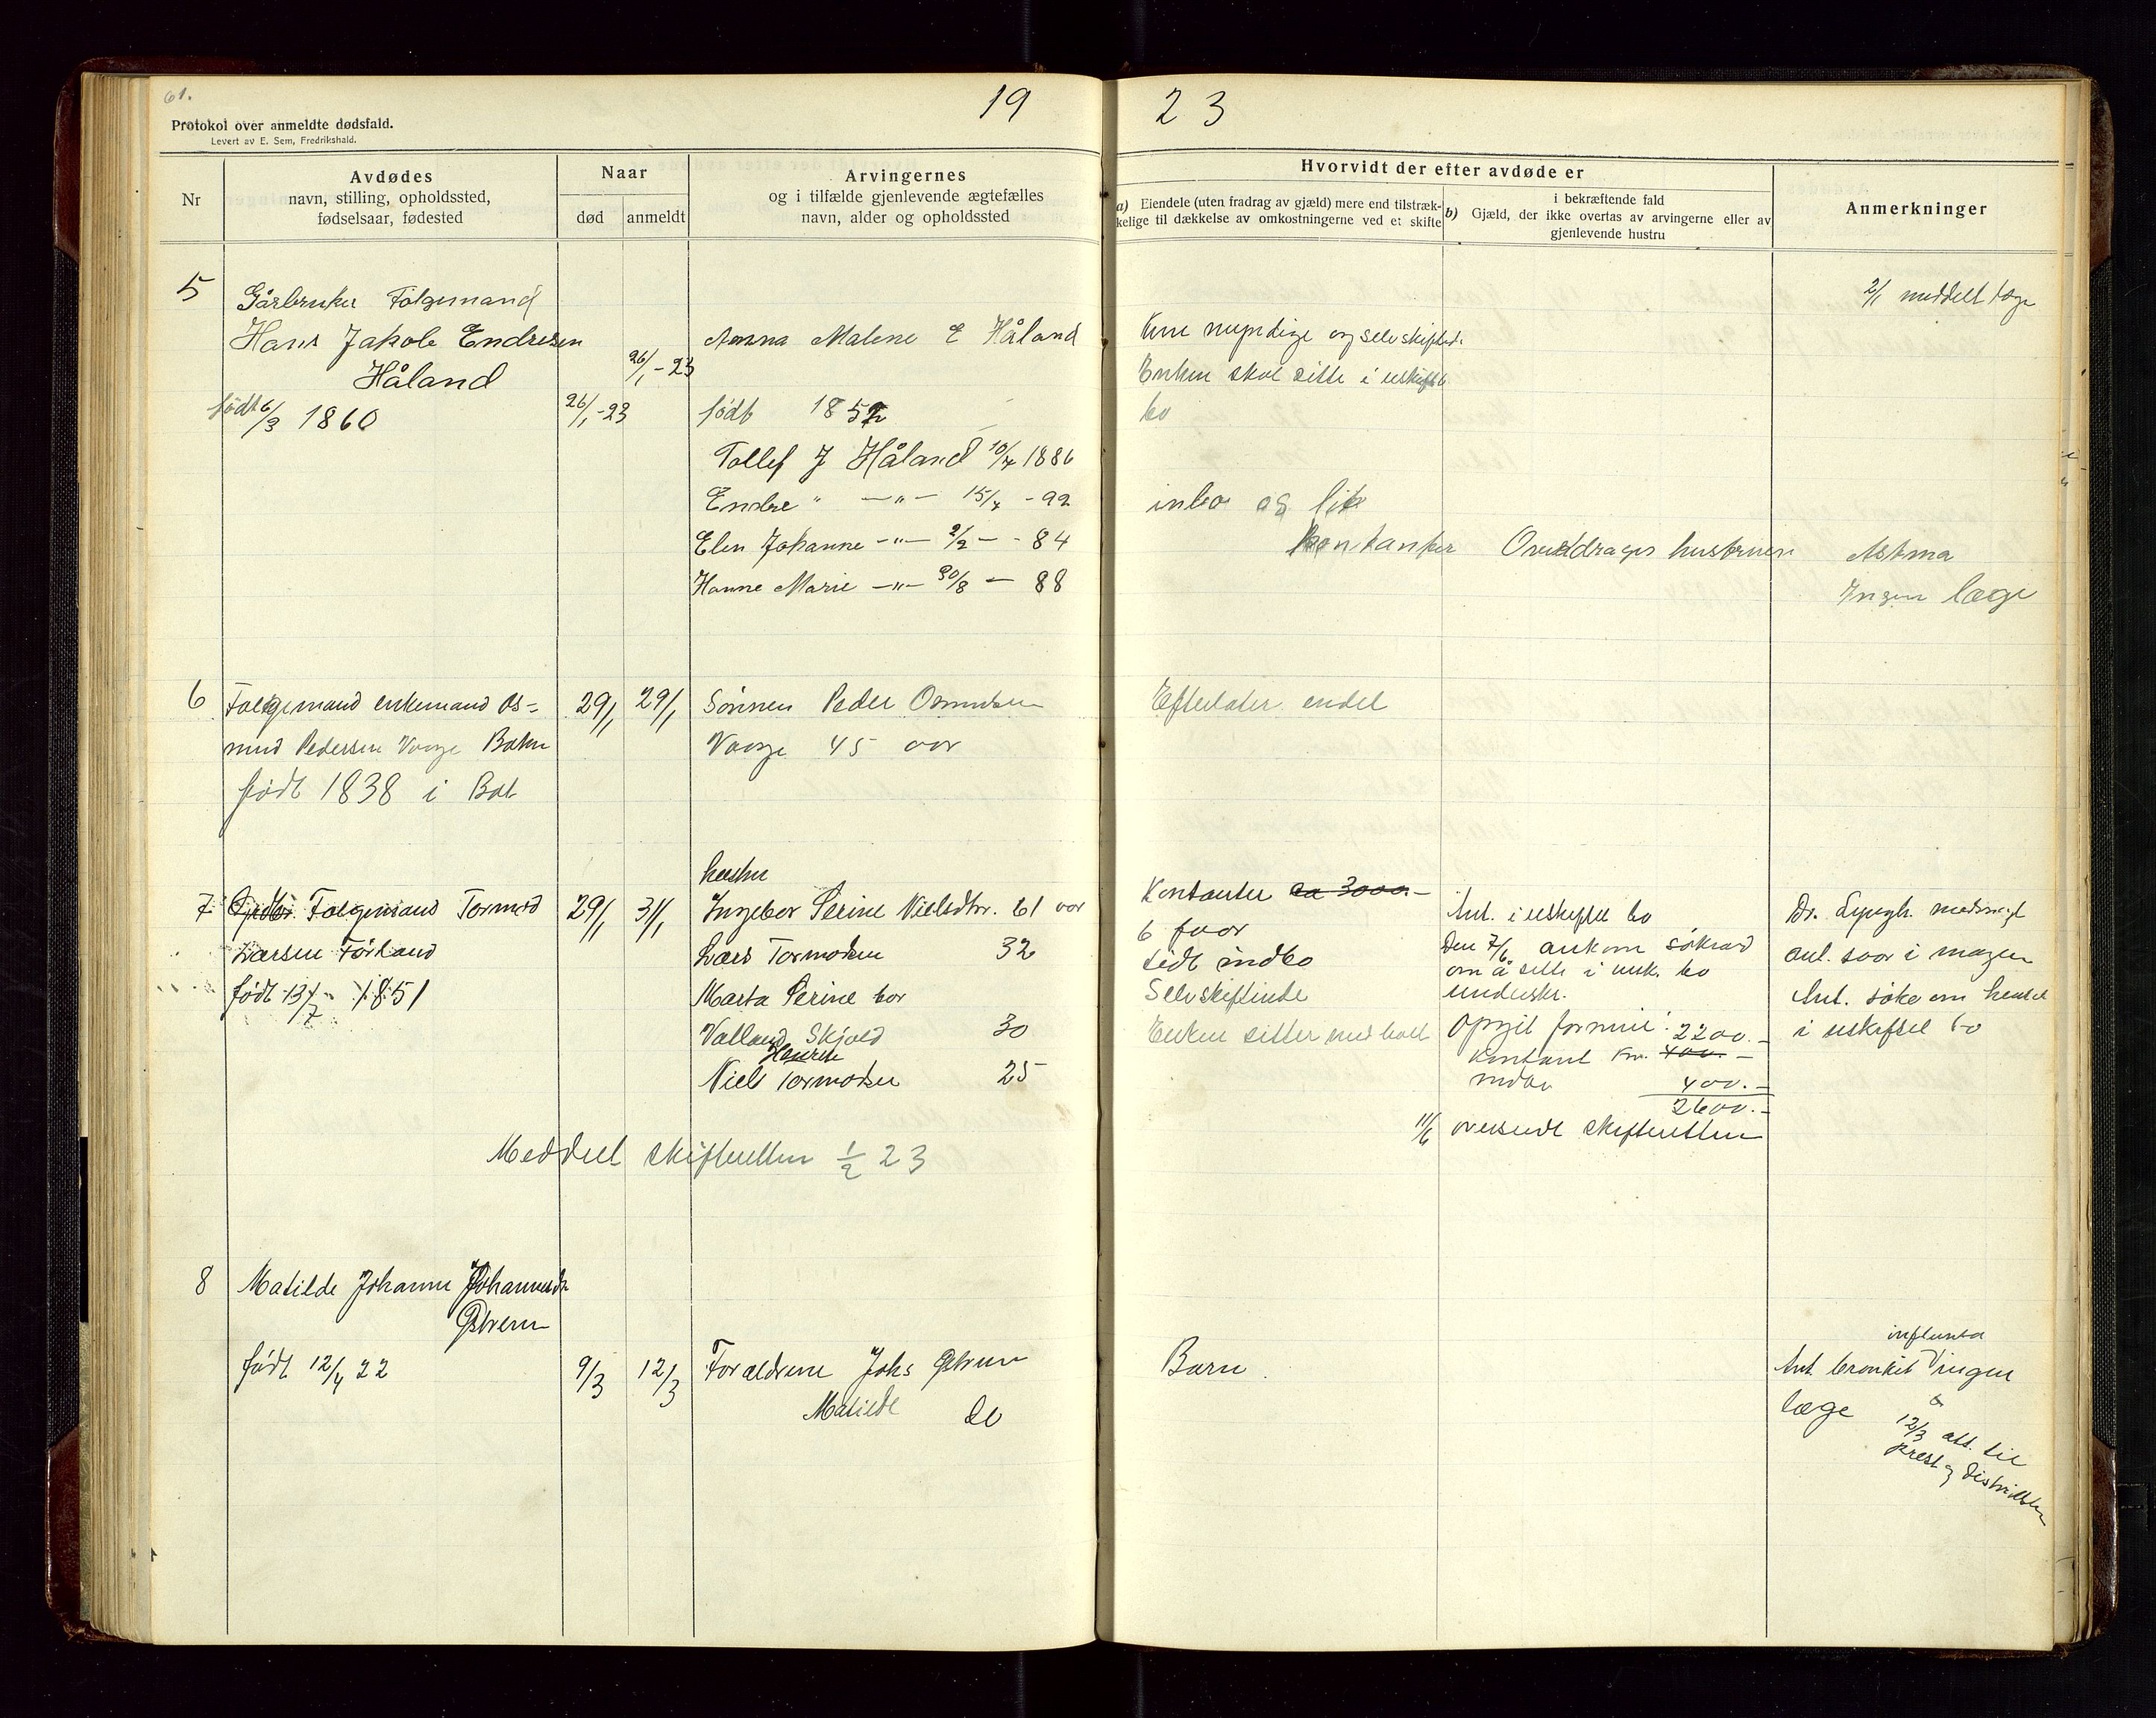 61.
19
23
Protokol over anmeldte dødsfald.
Levert av E. Sem, Fredrikshald.
Nr
Avdødes
navn, stilling, opholdssted,
fødselsaar, fødested
Naar
død
anmeldt
Arvingernes
og i tilfælde gjenlevende ægtefælles
navn, alder og opholdssted
Hvorvidt der efter avdøde er
a) Eiendele (uten fradrag av gjæld) mere end tilstræk-
kelige til dækkelse av omkostningerne ved et skifte
b)
i bekræftende fald
Gjæld, der ikke overtas av arvingerne eller av
gjenlevende hustru
Anmerkninger
5
Gårbruker Følgemand
Hans Jakob Endresen
Håland
født 6/3 1860
26/1-23
26/1-23
Anna Malene E Håland
født 1852
Tollef J Håland 10/4 1886
Endre " —"— 15/4 -92
Elen Johanne —"— 2/2 — - 84
Hanne Marie —"— 30/8 — 88
Enken skal sitte i uskiftet
bo
inbo og lit
kontanter
Overdrages hustruen
2/1 meddelt læge
Astma
Ingen læge
6
Følgemand enkemand Os-
mud Pedersen Vaage Bokn
født 1838 i Bok
29/1
29/1
Sønnen Peder Osmudsen
Vaage 45 aar
Efterlater endel
7
Følgemand Tormod
Larsen Førland
født 13/7 - 1851
29/1
31/1
hustru
Ingebor Serine Nielsdtr. 61 aar
Lars Tormodsen 32
Marta Serine bor
Valland Skjold 30
Niels Tormodsen 25
Kontanter ca 3000.-
6 faar
lidt indbo
Selvskiftende
Enken sitter med boet
Ant. i uskiftet bo
Den 7/6 ankom søknad
om å sitte i usk. bo
underskr.
Opgit formue: 2200.-
Kontant kr. 400.-
indbo 400.-
2600.-
11/6 oversendt skifteretten
ant. saar i magen
Ant. søke om hensit
i uskiftet bo
Meddelt skifteretten 1/2 23
8
Matilde Johanne Johannesdtr
Østrem
født 12/4 22
9/3
12/3
Forældrene Johs Østrem
Matilde do
Barn.
influensa
Ant. bronkit ingen
læge
12/3 att. til
prest og distriktsl